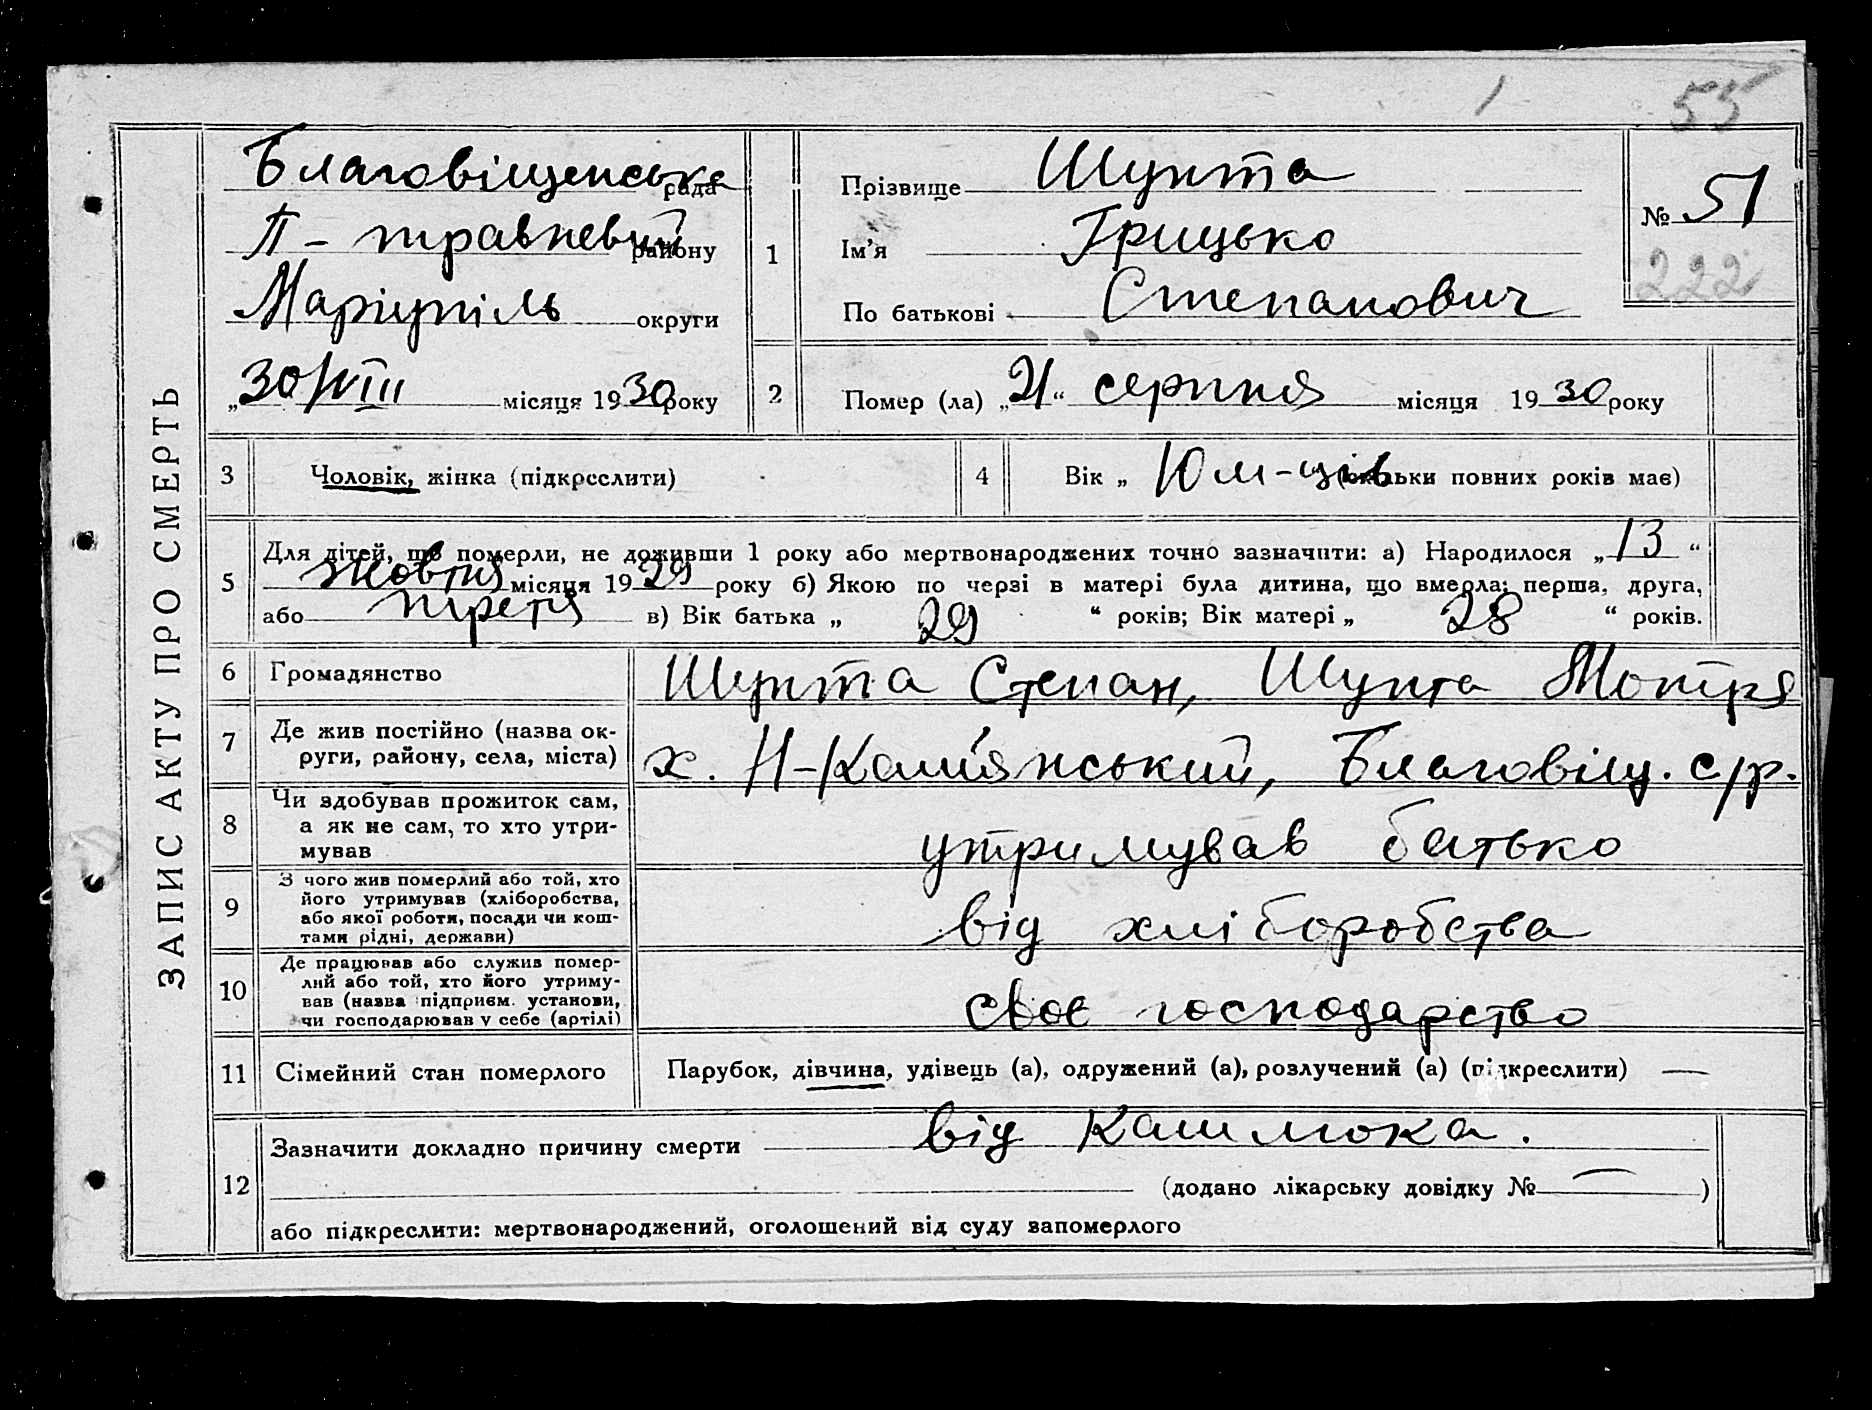 55
ЗАПИС АКТУ ПРО СМЕРТЬ
Благовіщенська рада
П-травневий району
Маріупіль округи
„30/VIII місяця 1930 року
1
Прізвище Шупта
Ім'я Грицько
По батькові Степанович
№ 51
222
2
Помер (ла) „21“ серпня місяця 1930 року
3
Чоловік, жінка (підкреслити)
4
Вік „ 10 м-ців (скільки повних років має)
5
Для дітей, що померли, не доживши 1 року або мертвонароджених точно зазначити: а) Народилося „13“
жовтня місяця 1929 року б) Якою по черзі в матері була дитина, що вмерла: перша, друга,
або третя в) Вік батька „ 29 “ років; Вік матері „ 28 “ років.
6
Громадянство
Шупта Степан, Шупта Мотря
7
Де жив постійно (назва ок-
руги, району, села, міста)
х. Н-Кам'янський, Благовіщ. с/р.
8
Чи здобував прожиток сам,
а як не сам, то хто утри-
мував
утримував батько
9
З чого жив померлий або той, хто
його утримував (хліборобства,
або якої роботи, посади чи кош-
тами рідні, держави)
від хліборобства
10
Де працював або служив помер-
лий або той, хто його утриму-
вав (назва підприєм. установи,
чи господарював у себе (артілі)
своє господарство
11
Сімейний стан померлого
Парубок, дівчина, удівець (а), одружений (а), розлучений (а) (підкреслити) —
12
Зазначити докладно причину смерти від Кашлюка.
(додано лікарську довідку № — )
або підкреслити: мертвонароджений, оголошений від суду запомерлого